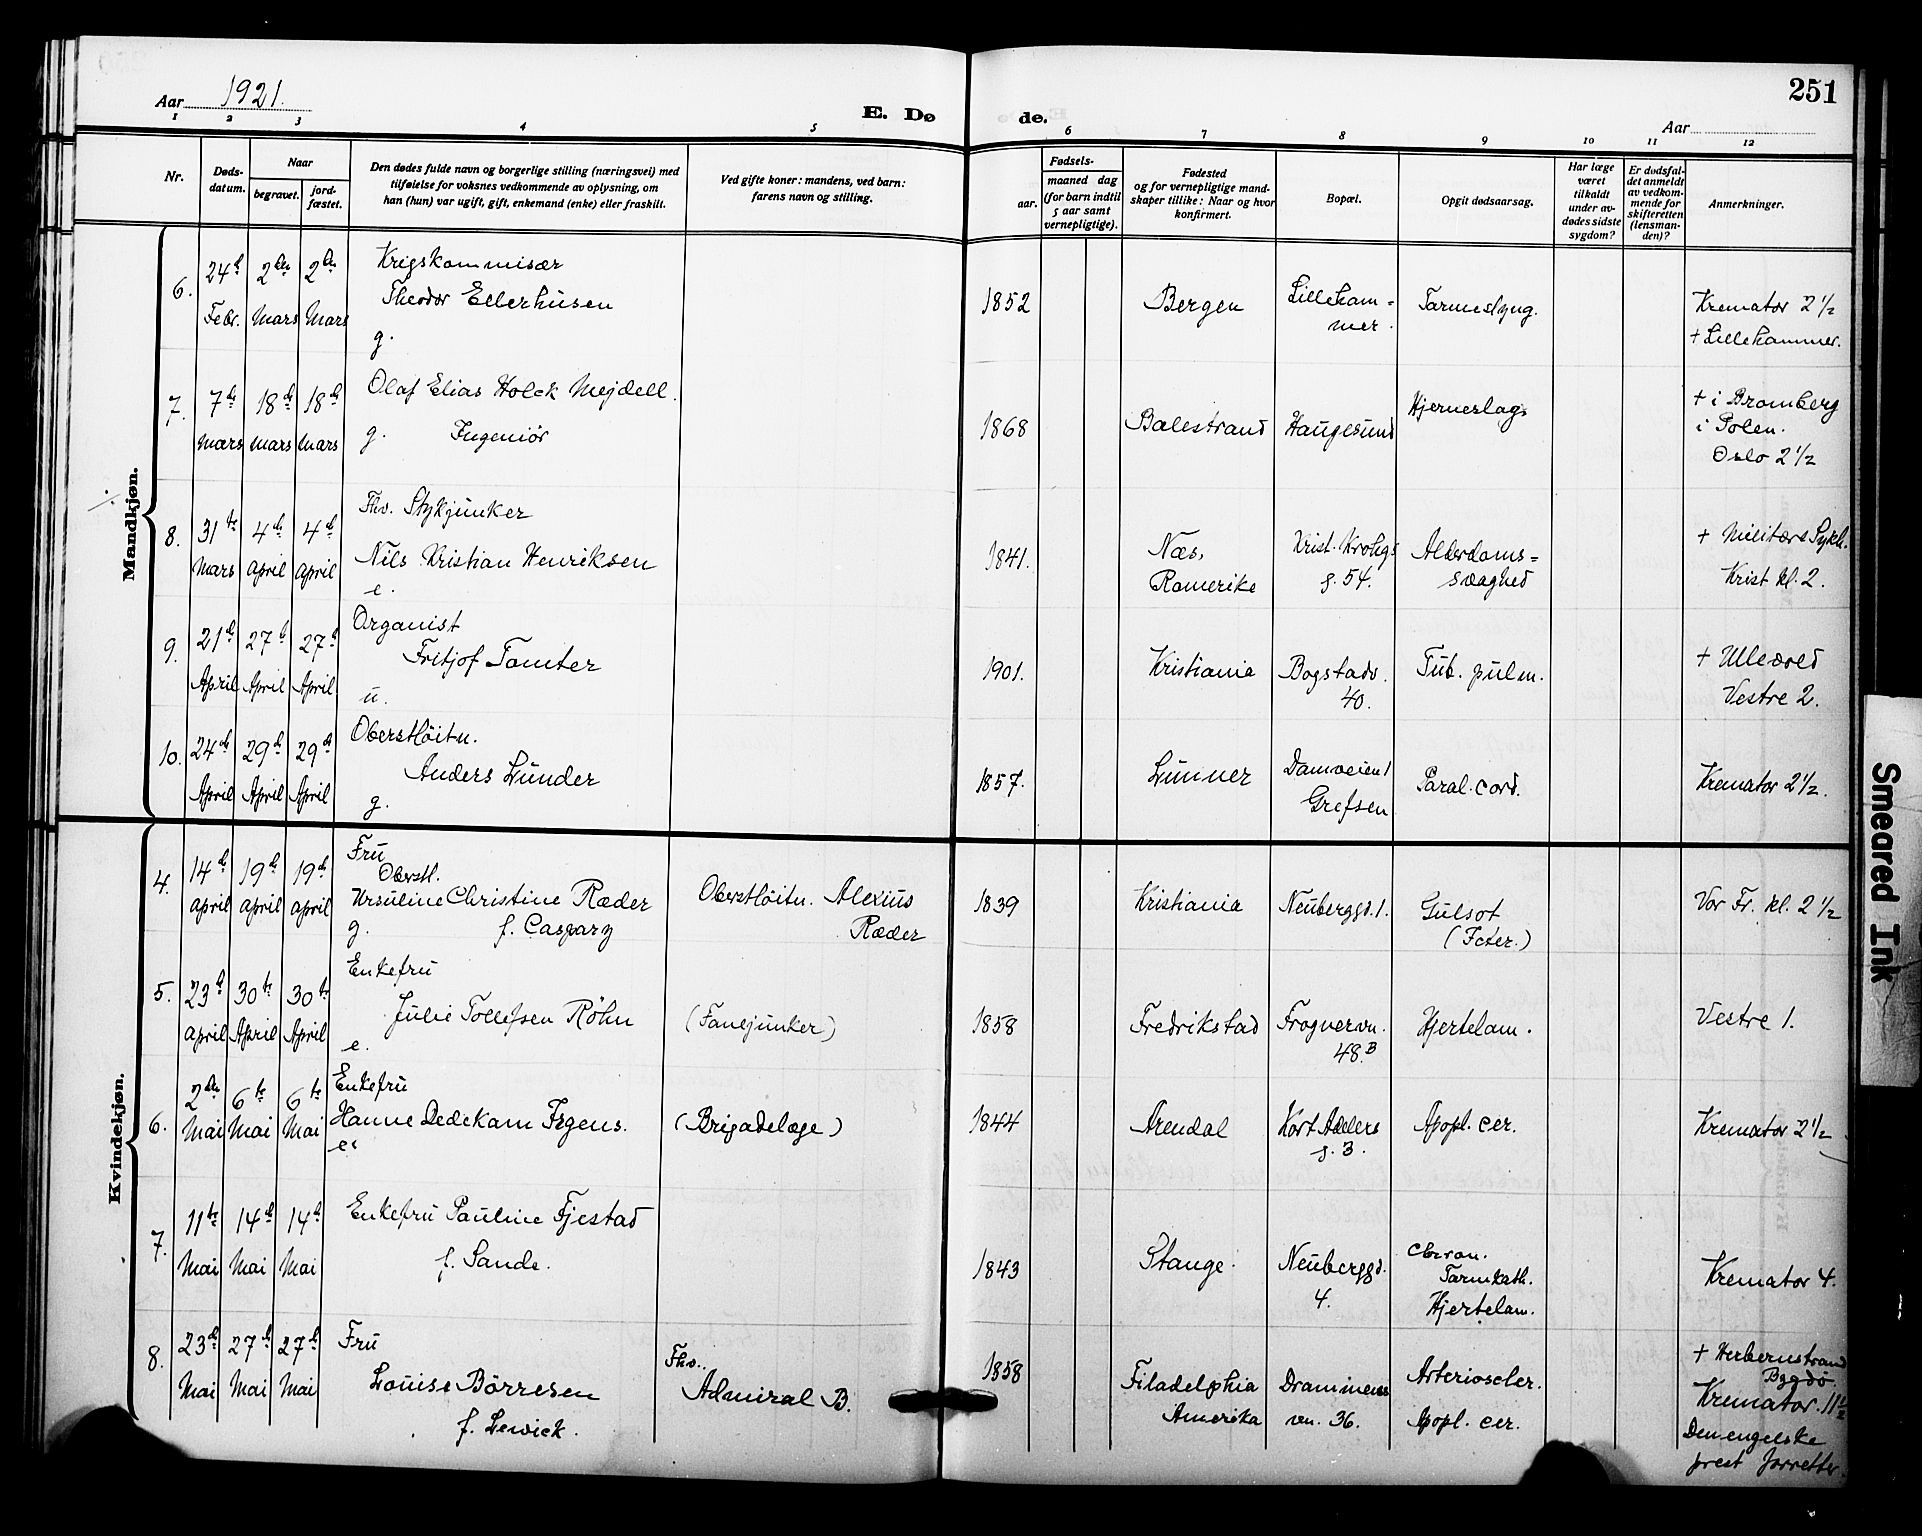 251
Aar 1921.
E. Dø de.
Aar
1 2 3 4 5 6 7 8 9 10 11 12
Nr.
Døds-
datum.
Naar
begravet.
jord-
fæstet.
Den dødes fulde navn og borgerlige stilling (næringsvei) med
tilføielse for voksnes vedkommende av oplysning, om
han (hun) var ugift, gift, enkemand (enke) eller fraskilt.
Ved gifte koner: mandens, ved barn:
farens navn og stilling.
Fødsels-
aar.
maaned dag
(for barn indtil
5 aar samt
vernepligtige).
Fødested
og for vernepligtige mand-
skaper tillike: Naar og hvor
konfirmert.
Bopæl.
Opgit dødsaarsag.
Har læge
været
tilkaldt
under av-
dødes sidste
sygdom?
Er dødsfal-
det anmeldt
av vedkom-
mende for
skifteretten
(lensman-
den)?
Anmerkninger.
Mandkjøn.
6.
24d Febr.
2den Mars
2den Mars
Krigskommisær
Theodor Ellerhusen
g.
1852
Bergen
Lilleham-
mer.
Tarmeslyng.
Kremator 2 1/2
+ Lillehammer.
7.
7de Mars
18de Mars
18de Mars
Olaf Elias Holck Mejdell.
g. Ingeniör
1868
Balestrand
Haugesund
Hjerneslag
+ i Bromberg
i Polen.
Oslo 2 1/2
8.
31te Mars
4de April
4de April
Fhv. Stykjunker
Nils Kristian Henriksen
e.
1841.
Næs,
Romerike
Krist. Krohgs
g. 54.
Alderdoms=
svaghed
+ Militære Sykh.
Krist kl. 2.
9.
21de April
27d April
27d April
Organist
Fritjof Tomter
u.
1901.
Kristiania
Bogstadv.
40.
Tub. pulm.
+ Ullevold
Vestre 2.
10.
24de April
29d April
29d April
Oberstlöitn.
Anders Lunder
g.
1857.
Lunner
Damveien 1
Grefsen
Paral. cord.
Kremator 2 1/2.
Kvindekjøn.
4.
14d April
19d April
19d April
Fru
Oberstl.
Ursuline Christine Ræder
g. f. Caspary
Oberstlöitn. Alexius
Ræder
1839
Kristiania
Neuberggd. 1.
Gulsot
(Icter.)
Vor Fr. kl. 2 1/2
5.
23d April
30te April
30te April
Enkefru
Julie Tollefsen Röhn
e.
(Fanejunker)
1858
Fredrikstad
Frognervn.
48.B
Hjertelam.
Vestre 1.
6.
2den Mai
6te Mai
6te Mai
Enkefru
Hanne Dedekam Irgens.
e.
(Brigadelæge)
1844
Arendal
Kort Adelers
g. 3.
Apopl. cer.
Kremator 2 1/2
7.
11te Mai
14d Mai
14d Mai
Enkefru Pauline Fjestad
f. Sande.
1843
Stange.
Neuberggd.
4.
Chron.
Tarmkath.
Hjertelam.
Kremator 4.
8.
23de Mai
27de Mai
27de Mai
Fru
Louise Börresen
f. Lewick.
Fhv.
Admiral B.
1858
Filadelphia
Amerika
Drammens
vn. 36.
Arterioscler.
Apopl. cer.
+ Herbernstrand
Bygdö.
Kremator. 11 1/2
Den engelske
prest
Smeared Ink